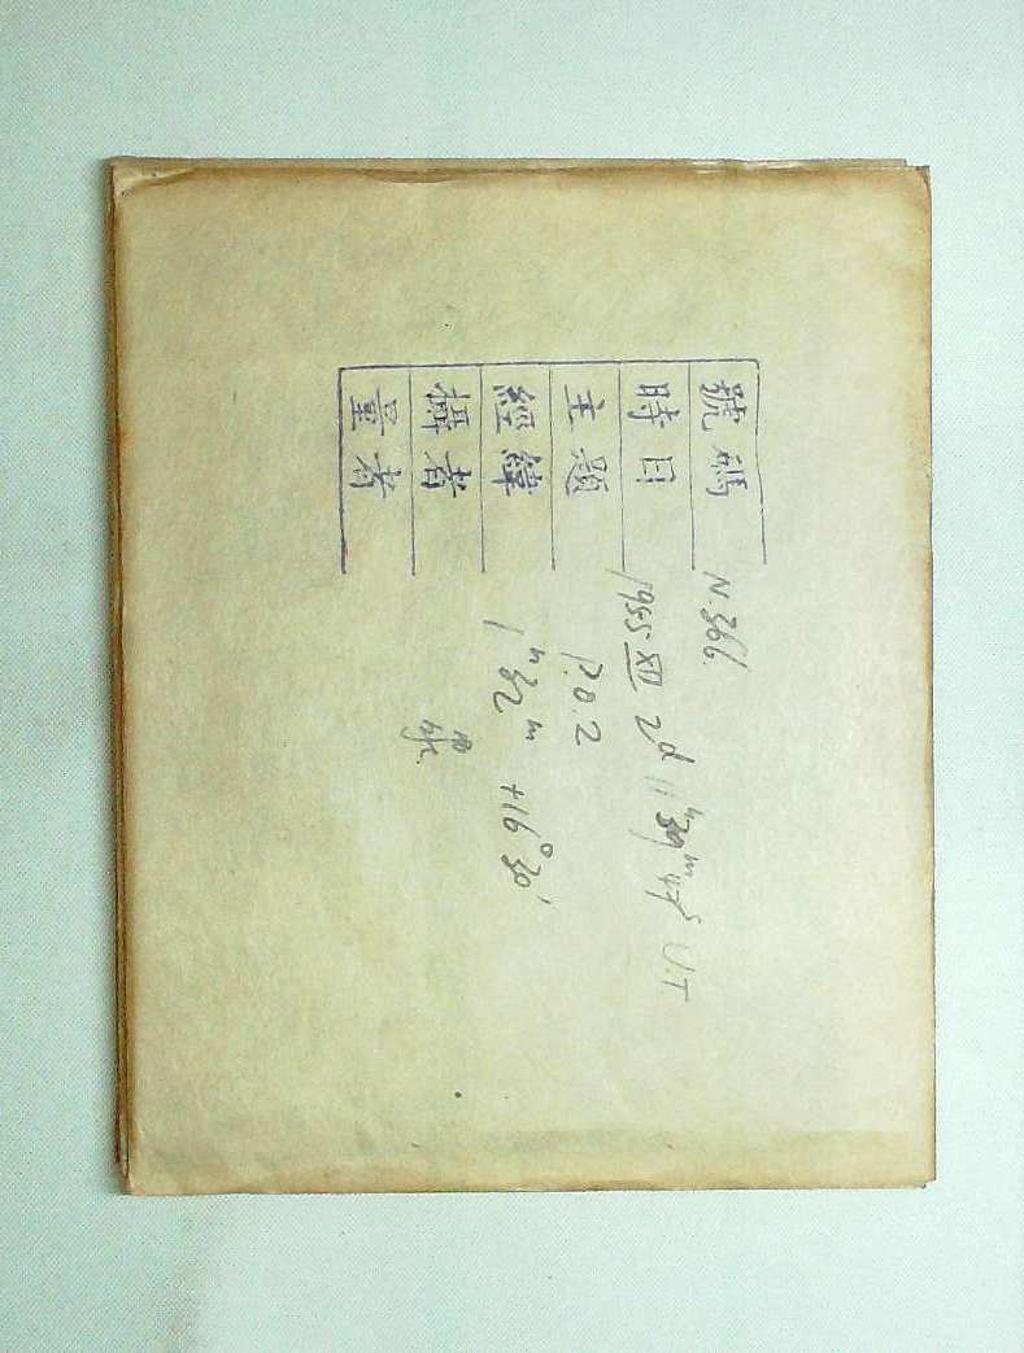 號碼 N.366.
時日 1955 XII 2d 11h39m47s U.T
主題 P.O.2
經緯 1h32m +16°30'
攝者
量者